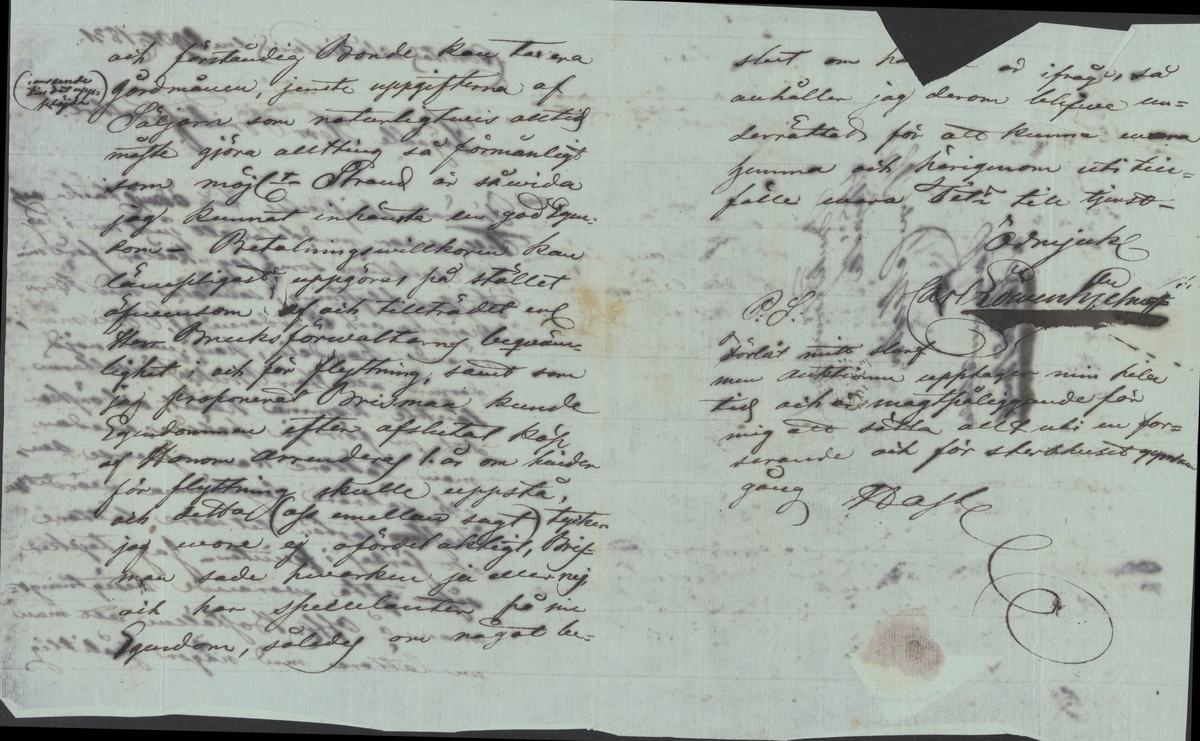 och förståndig Bonde kan taxera
(i anseende
till det upp-
plöjda)
gårdmånen, jemte uppgifterna af
Säljarn som naturligtwis alltid
måste göra allting så förmånligt
som möjl:t Strand är såwida
jag kunnat inhämta en god Egen-
dom – Betalningswillkoren kan
lämpligast uppgöras på stället
äfwensom af och tillträdet enl
Herr Bruksförwaltarns beqwäm-
lighet i och för flyttning, samt som
jag proponerat Brisman kunde
Egendommen efter afslutat köp
af Honom arrenderas 1. år om hinder
för flyttning skulle uppstå,
och detta (oss emellan sagt) tycker
jag wore ej ofördelaktigt, Bris-
man sade hwarken ja eller nej
och har spekulanter på sin
Egendom, således om något be-
slut om är ifråga, så
anhåller jag derom blifwa un-
derrättad för att kunna wara
hemma och härigenom uti till-
fälle wara Detta till tjenst –
Ödmjuk
Carl Löwenhjelm
P. S.
Förlåt mitt slarf
men auktioner upptager min hela
tid och är magtpåliggande för
mig att sätta allt uti en for-
serande och för sterbhuset gynsam
gång
DAS